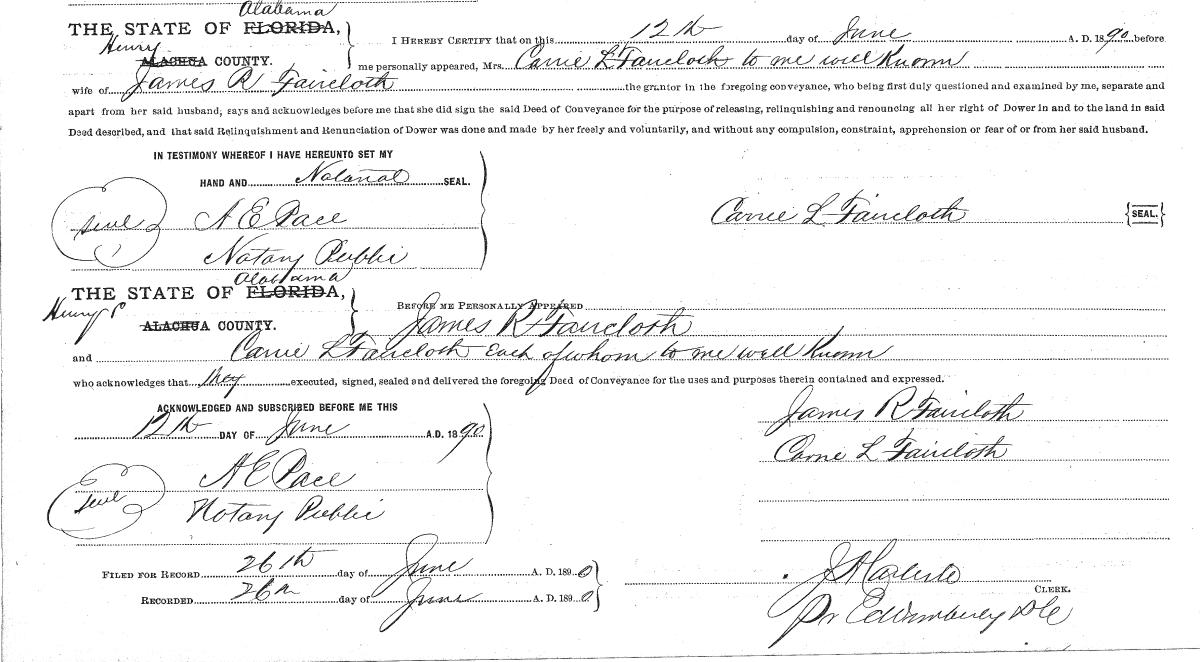 Alabama
THE STATE OF FLORIDA,
Henry
ALACHUA COUNTY.
I HEREBY CERTIFY that on this 12th day of June A. D. 1890 before
me personally appeared, Mrs. Carrie L Faircloth to me well Known
wife of James R Faircloth the grantor in the foregoing conveyance, who being first duly questioned and examined by me, separate and
apart from her said husband; says and acknowledges before me that she did sign the said Deed of Conveyance for the purpose of releasing, relinquishing and renouncing all her right of Dower in and to the land in said
Deed described, and that said Relinquishment and Renunciation of Dower was done and made by her freely and voluntarily, and without any compulsion, constraint, apprehension or fear of or from her said husband.
IN TESTIMONY WHEREOF I HAVE HEREUNTO SET MY
HAND AND Notarial SEAL.
Seal
A E Pace
Carrie L Faircloth {SEAL.}
Notary Public
Alabama
THE STATE OF FLORIDA,
Henry
ALACHUA COUNTY.
BEFORE ME PERSONALLY APPEARED
James R Faircloth
and Carrie L Faircloth Each of whom to me well Known
who acknowledges that they executed, signed, sealed and delivered the foregoing Deed of Conveyance for the uses and purposes therein contained and expressed.
ACKNOWLEDGED AND SUBSCRIBED BEFORE ME THIS
12th DAY OF June A.D. 1890
James R Faircloth
Carrie L Faircloth
Seal
A E Pace
Notary Public
FILED FOR RECORD 26th day of June A. D. 1890
RECORDED 26th day of June A. D. 1890
CLERK.